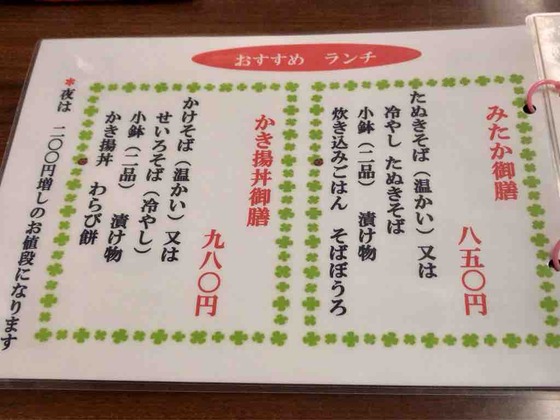 おすすめ ランチ
みたか御膳
八五〇円
たぬきそば（温かい）又は
冷やし たぬきそば
小鉢（二品） 漬け物
炊き込みごはん そばぼうろ
かき揚丼御膳
九八〇円
かけそば（温かい）又は
せいろそば（冷やし）
小鉢（二品） 漬け物
かき揚丼 わらび餅
*夜は 二〇〇円増しのお値段になります